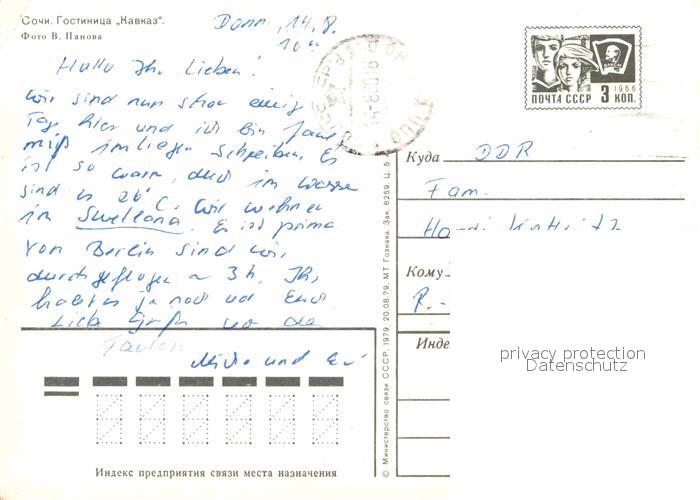 Сочи. Гостиница „Кавказ“.
Фото В. Панова
Donn., 14.8.
10⁰⁰
Hallo Ihr Lieben!
Wir sind nun schon einige
Tage hier und ich bin
im liegen schreiben. Es
ist so warm, auch im Wasser
sind es 26° C. Wir wohnen
im Swetlana. Es ist prima
Von Berlin sind wir
durchgeflogen ~ 3 h. Ihr
habt es ja noch vor Euch.
Liebe Grüße von den
Faulen
und
ПОЧТА СССР 3 КОП.
1966
Куда DDR
Fam.
Кому
R.-
Инде
privacy protection
Datenschutz
Индекс предприятия связи места назначения
© Министерство связи СССР, 1979. 20.08.79. МТ Гознака. Зак. 6259. Ц. 5